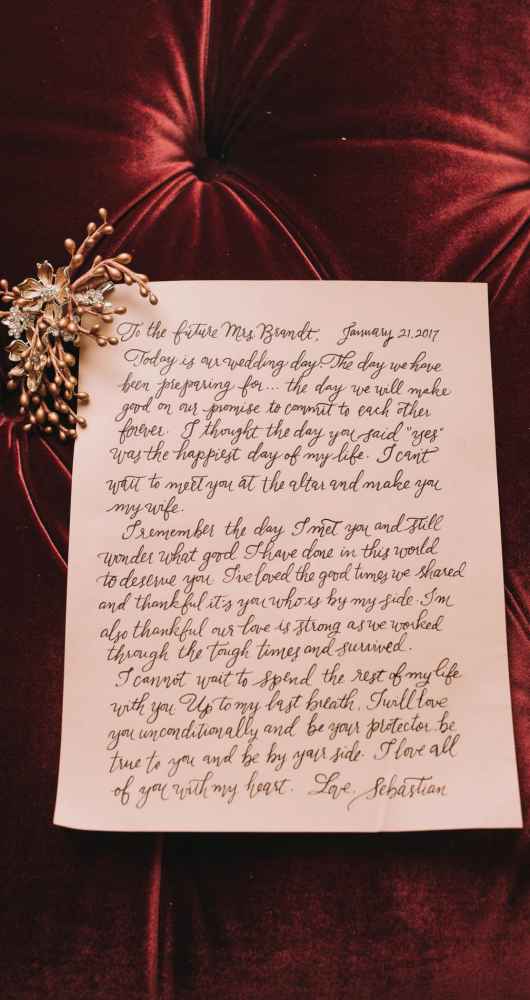 To the future Mrs. Brandt, January 21, 2017
Today is our wedding day! The day we have
been preparing for... the day we will make
good on our promise to commit to each other
forever. I thought the day you said "yes"
was the happiest day of my life. I can't
wait to meet you at the altar and make you
my wife.
I remember the day I met you and still
wonder what good I have done in this world
to deserve you. I've loved the good times we shared
and thankful it's you who is by my side. I'm
also thankful our love is strong as we worked
through the tough times and survived.
I cannot wait to spend the rest of my life
with you. Up to my last breath, I will love
you unconditionally and be your protector, be
true to you and be by your side. I love all
of you with my heart. Love, Sebastian